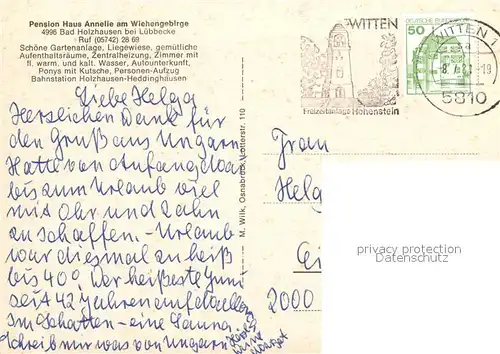 Pension Haus Annelie am Wiehengebirge
4996 Bad Holzhausen bei Lübbecke
Ruf (05742) 28 69
Schöne Gartenanlage, Liegewiese, gemütliche
Aufenthaltsräume, Zentralheizung, Zimmer mit
fl. warm. und kalt. Wasser, Autounterkunft,
Ponys mit Kutsche, Personen-Aufzug
Bahnstation Holzhausen-Heddinghausen
Liebe Helga
Herzlichen Dank für
den Gruß aus Ungarn
Hatte von Anfang Mai
bis zum Urlaub viel
mit Ohr und Zahn
zu schaffen. Urlaub
war diesmal zu heiß
bis 40° Der heißeste Juni
seit 42 Jahren auf
Im Schatten - eine Sauna
Schreib mir was von Ungarn
M. Wilk, Osnabrück, 110
WITTEN
Freizeitanlage Hohenstein
DEUTSCHE BUNDESPOST
50
WITTEN
8. -19
5810
Frau
Helg
2000
privacy protection
Datenschutz